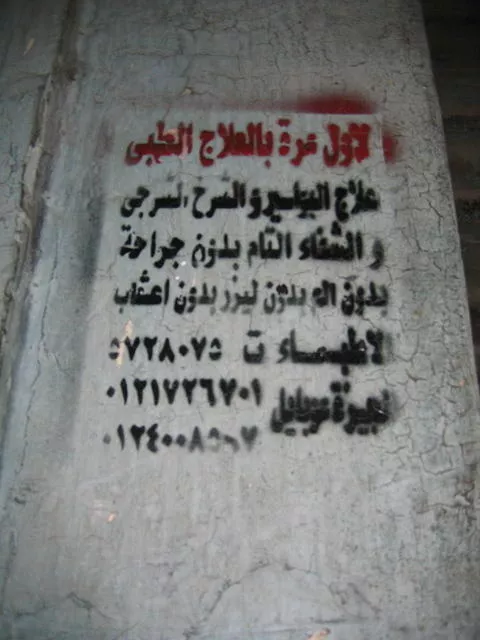 لاول مرة بالعلاج الطبى
علاج البواسير و الشرخ الشرجى
و الشفاء التام بدون جراحة
بدون الم بدون ليزر بدون اعشاب
الاطباء ت ٥٧٢٨٠٧٥
جيزة موبايل ٠١٢١٧٢٦٧٠١